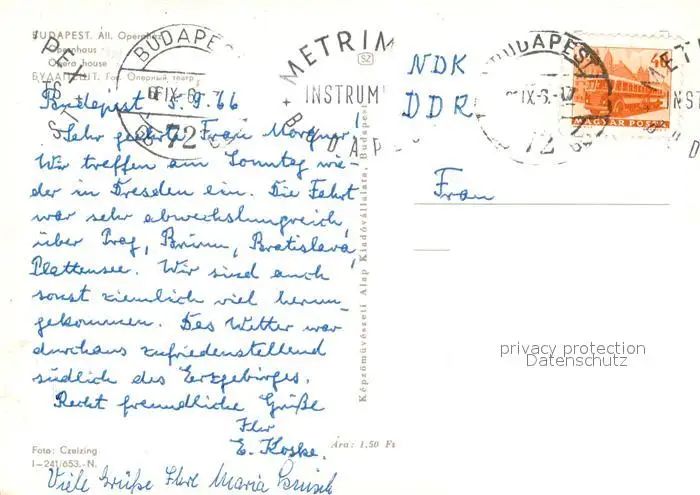 BUDAPEST. Áll. Operaház
Opernhaus
Opera house
БУДАПЕШТ. Гос. Оперный театр
BUDAPEST
IX-6.
72
METRIM
INSTRUM
BUDAP
SZ
NDK
DDR
BUDAPEST
IX-6.
72
MAGYAR POSTA
Budapest 5.9.66
Sehr geehrte Frau Morgner!
Wir treffen am Sonntag wie-
der in Dresden ein. Die Fahrt
war sehr abwechslungsreich,
über Prag, Brünn, Bratislava,
Plattensee. Wir sind auch
sonst ziemlich viel herum-
gekommen. Das Wetter war
durchaus zufriedenstellend
südlich des Erzgebirges.
Recht freundliche Grüße
Ihr
E. Koske.
Viele Grüße Ihre Maria
Frau
Képzőművészeti Alap Kiadóvállalata, Budapest
Foto: Czeizing
I—241/653.-N.
Ára: 1.50 Ft
privacy protection
Datenschutz